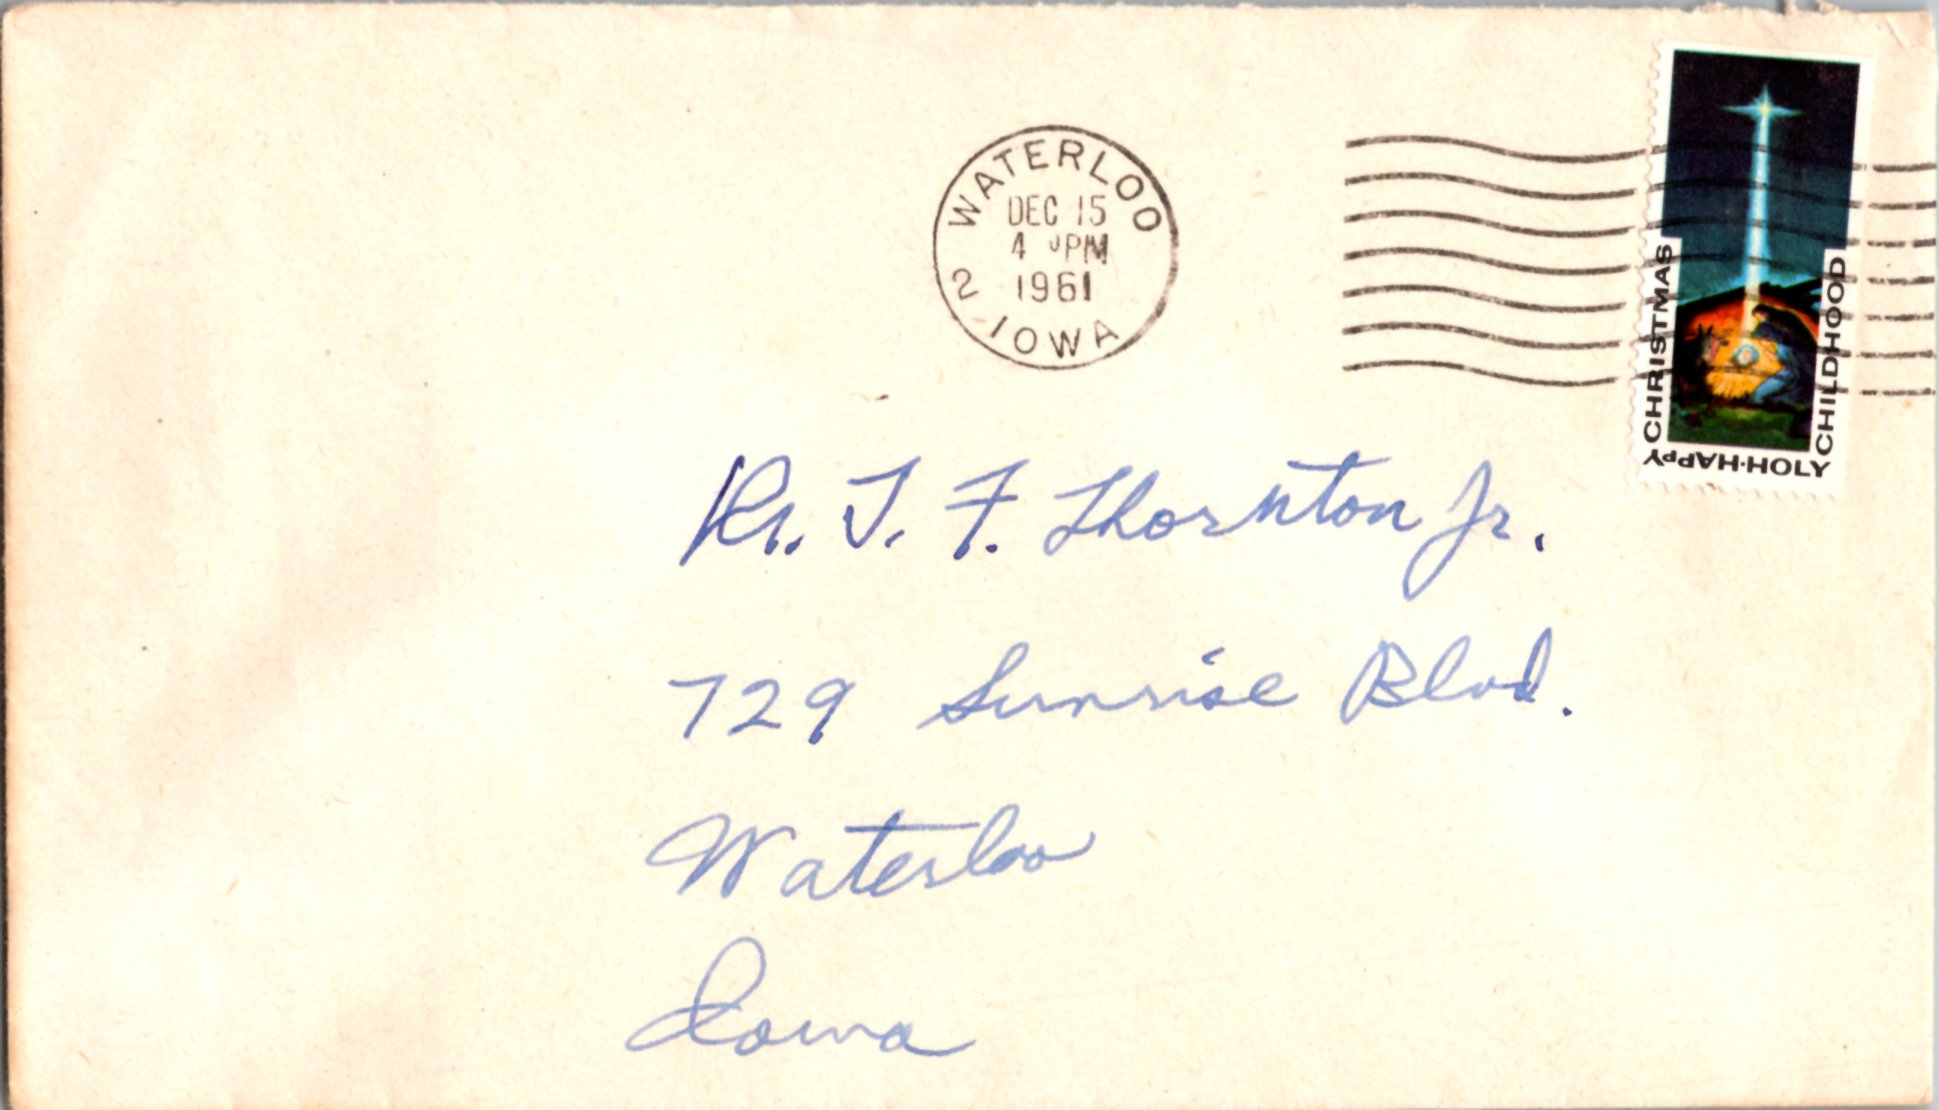 WATERLOO
DEC 15
4 PM
1961
2 IOWA
CHRISTMAS
CHILDHOOD
HAPPY·HOLY
Dr. T. F. Thornton Jr.
729 Sunrise Blvd.
Waterloo
Iowa